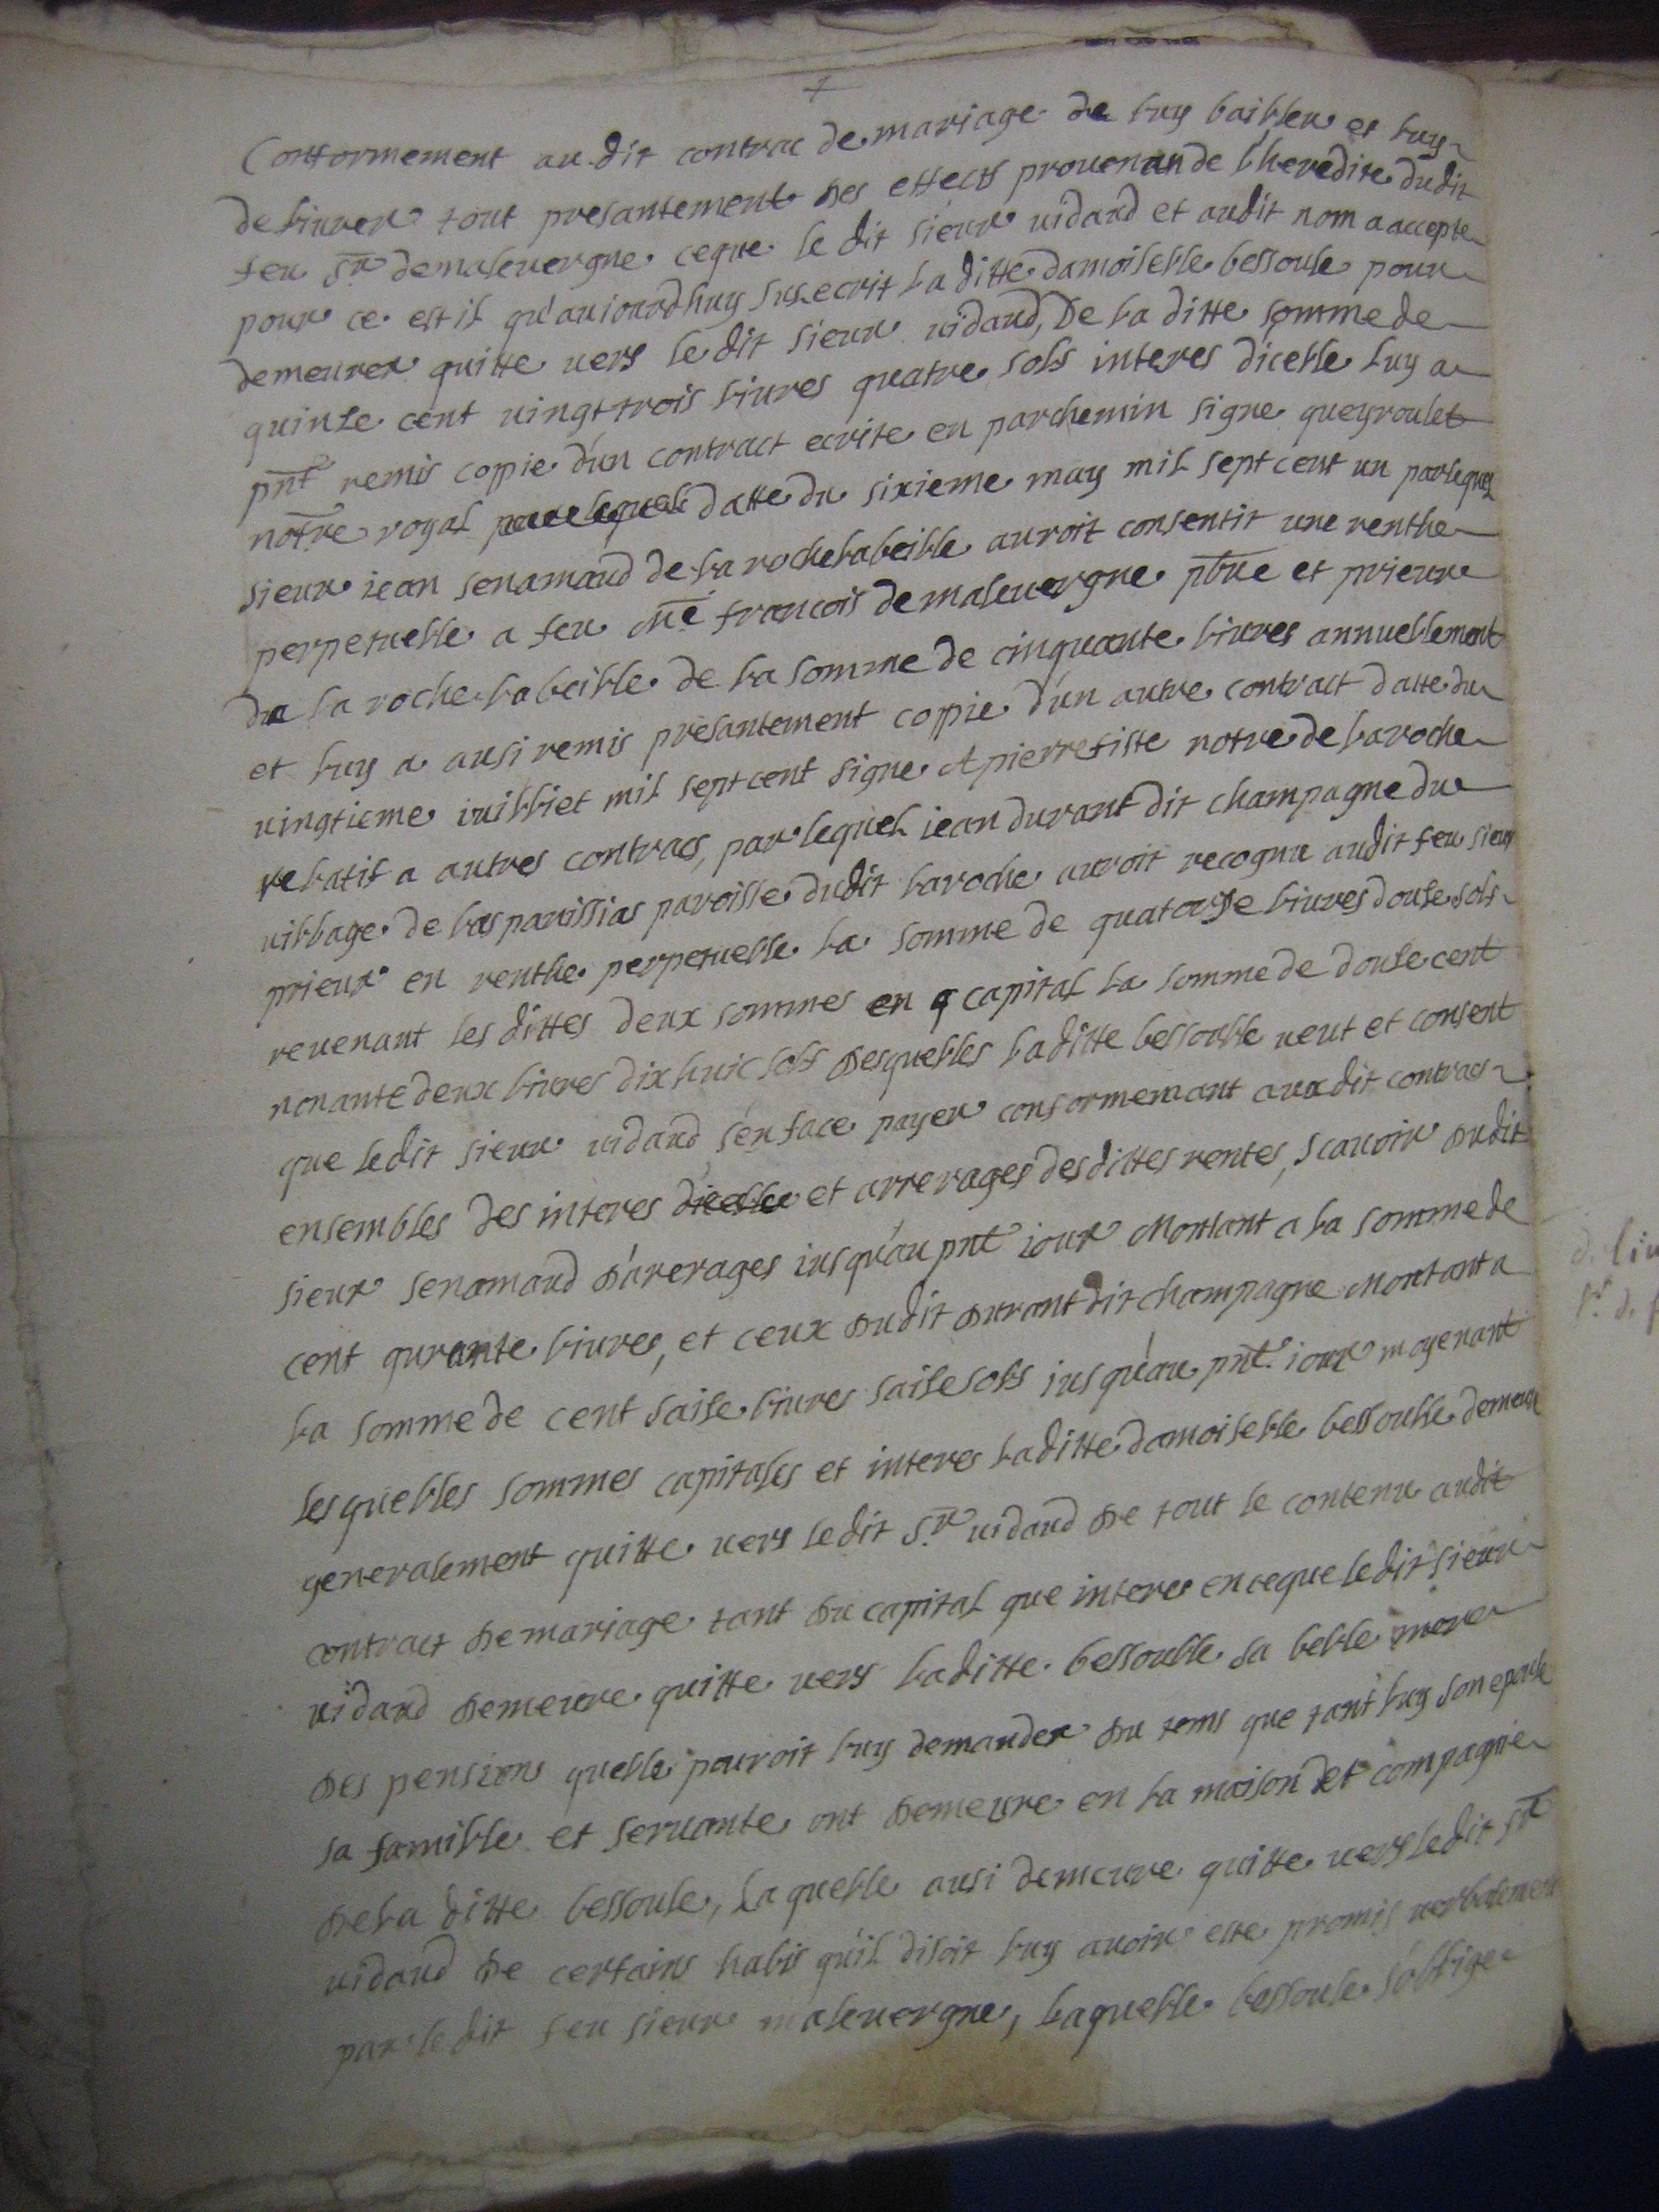 Conformement au dit contrac de mariage de luy bailler et luy
delivrer tout presantement des effects provenan de lheredite dudit
feu Sr demalevergne ceque le dit sieur vidaud et audit nom a accepte
pour ce est il qu'auiourdhuy susecrit la ditte damoiselle bessoule pour
demeurer quitte vers le dit sieur vidaud, De la ditte somme de
quinse cent vingt trois livres quatre sols interes dicelle luy a
pnt remis coppie d'un contract ecrite en parchemin signe queyroulet
notre royal datte du sixieme may mil sept cent un par lequel
sieur iean senamaud de la rochelabeille auroit consentit une renthe
perpetuelle a feu Me francois demalevergne pbre et prieur
du la roche labeille de la somme de cinquante livres annuellement
et luy a ausi remis presantement coppie d'un autre contract datte du
vingtieme iuilliet mil sept cent signe A pierrefiste notre de laroche
relatif a autres contracs, par lequel iean durant dit champagne du
village de las panissias paroisse dudit laroche auroit recognu audit feu sieur
prieur en renthe perpetuelle la somme de quatorse livres douse sols
revenant les dittes deux sommes en capital la somme de douse cent
nonante deux livres dix huic sols desquelles laditte bessoulle veut et consent
que ledit sieur vidaud s'en face payer conformemant aux dit contracs
ensembles des interes dicelle et arrerages des dittes rentes, scavoir dudit
sieur senamaud d'arerages iusqu'au pnt iour Montant a la somme de
cent qurante livres, et ceux dudit durant dit champagne Montant a
la somme de cent saise livres saise sols iusqu'au pnt iour moyenant
lesquelles sommes capitales et interes laditte damoiselle bessoulle demeure
generalement quitte vers ledit Sr vidaud de tout le contenu audit
contract de mariage tant du capital que interes en ceque ledit sieur
vidaud demeure quitte vers laditte bessoulle sa belle mere
des pensions quelle pouroit luy demander du tems que tant luy son epouse
sa famille et servante ont demeure en la maison et compagnie
dela ditte bessoule, laquelle ausi demeure quitte vers ledit Sr
vidaud de certains habis qu'il disoit luy avoir este promis verbalement
par le dit feu sieur malevergne, laquelle bessoule s'oblige